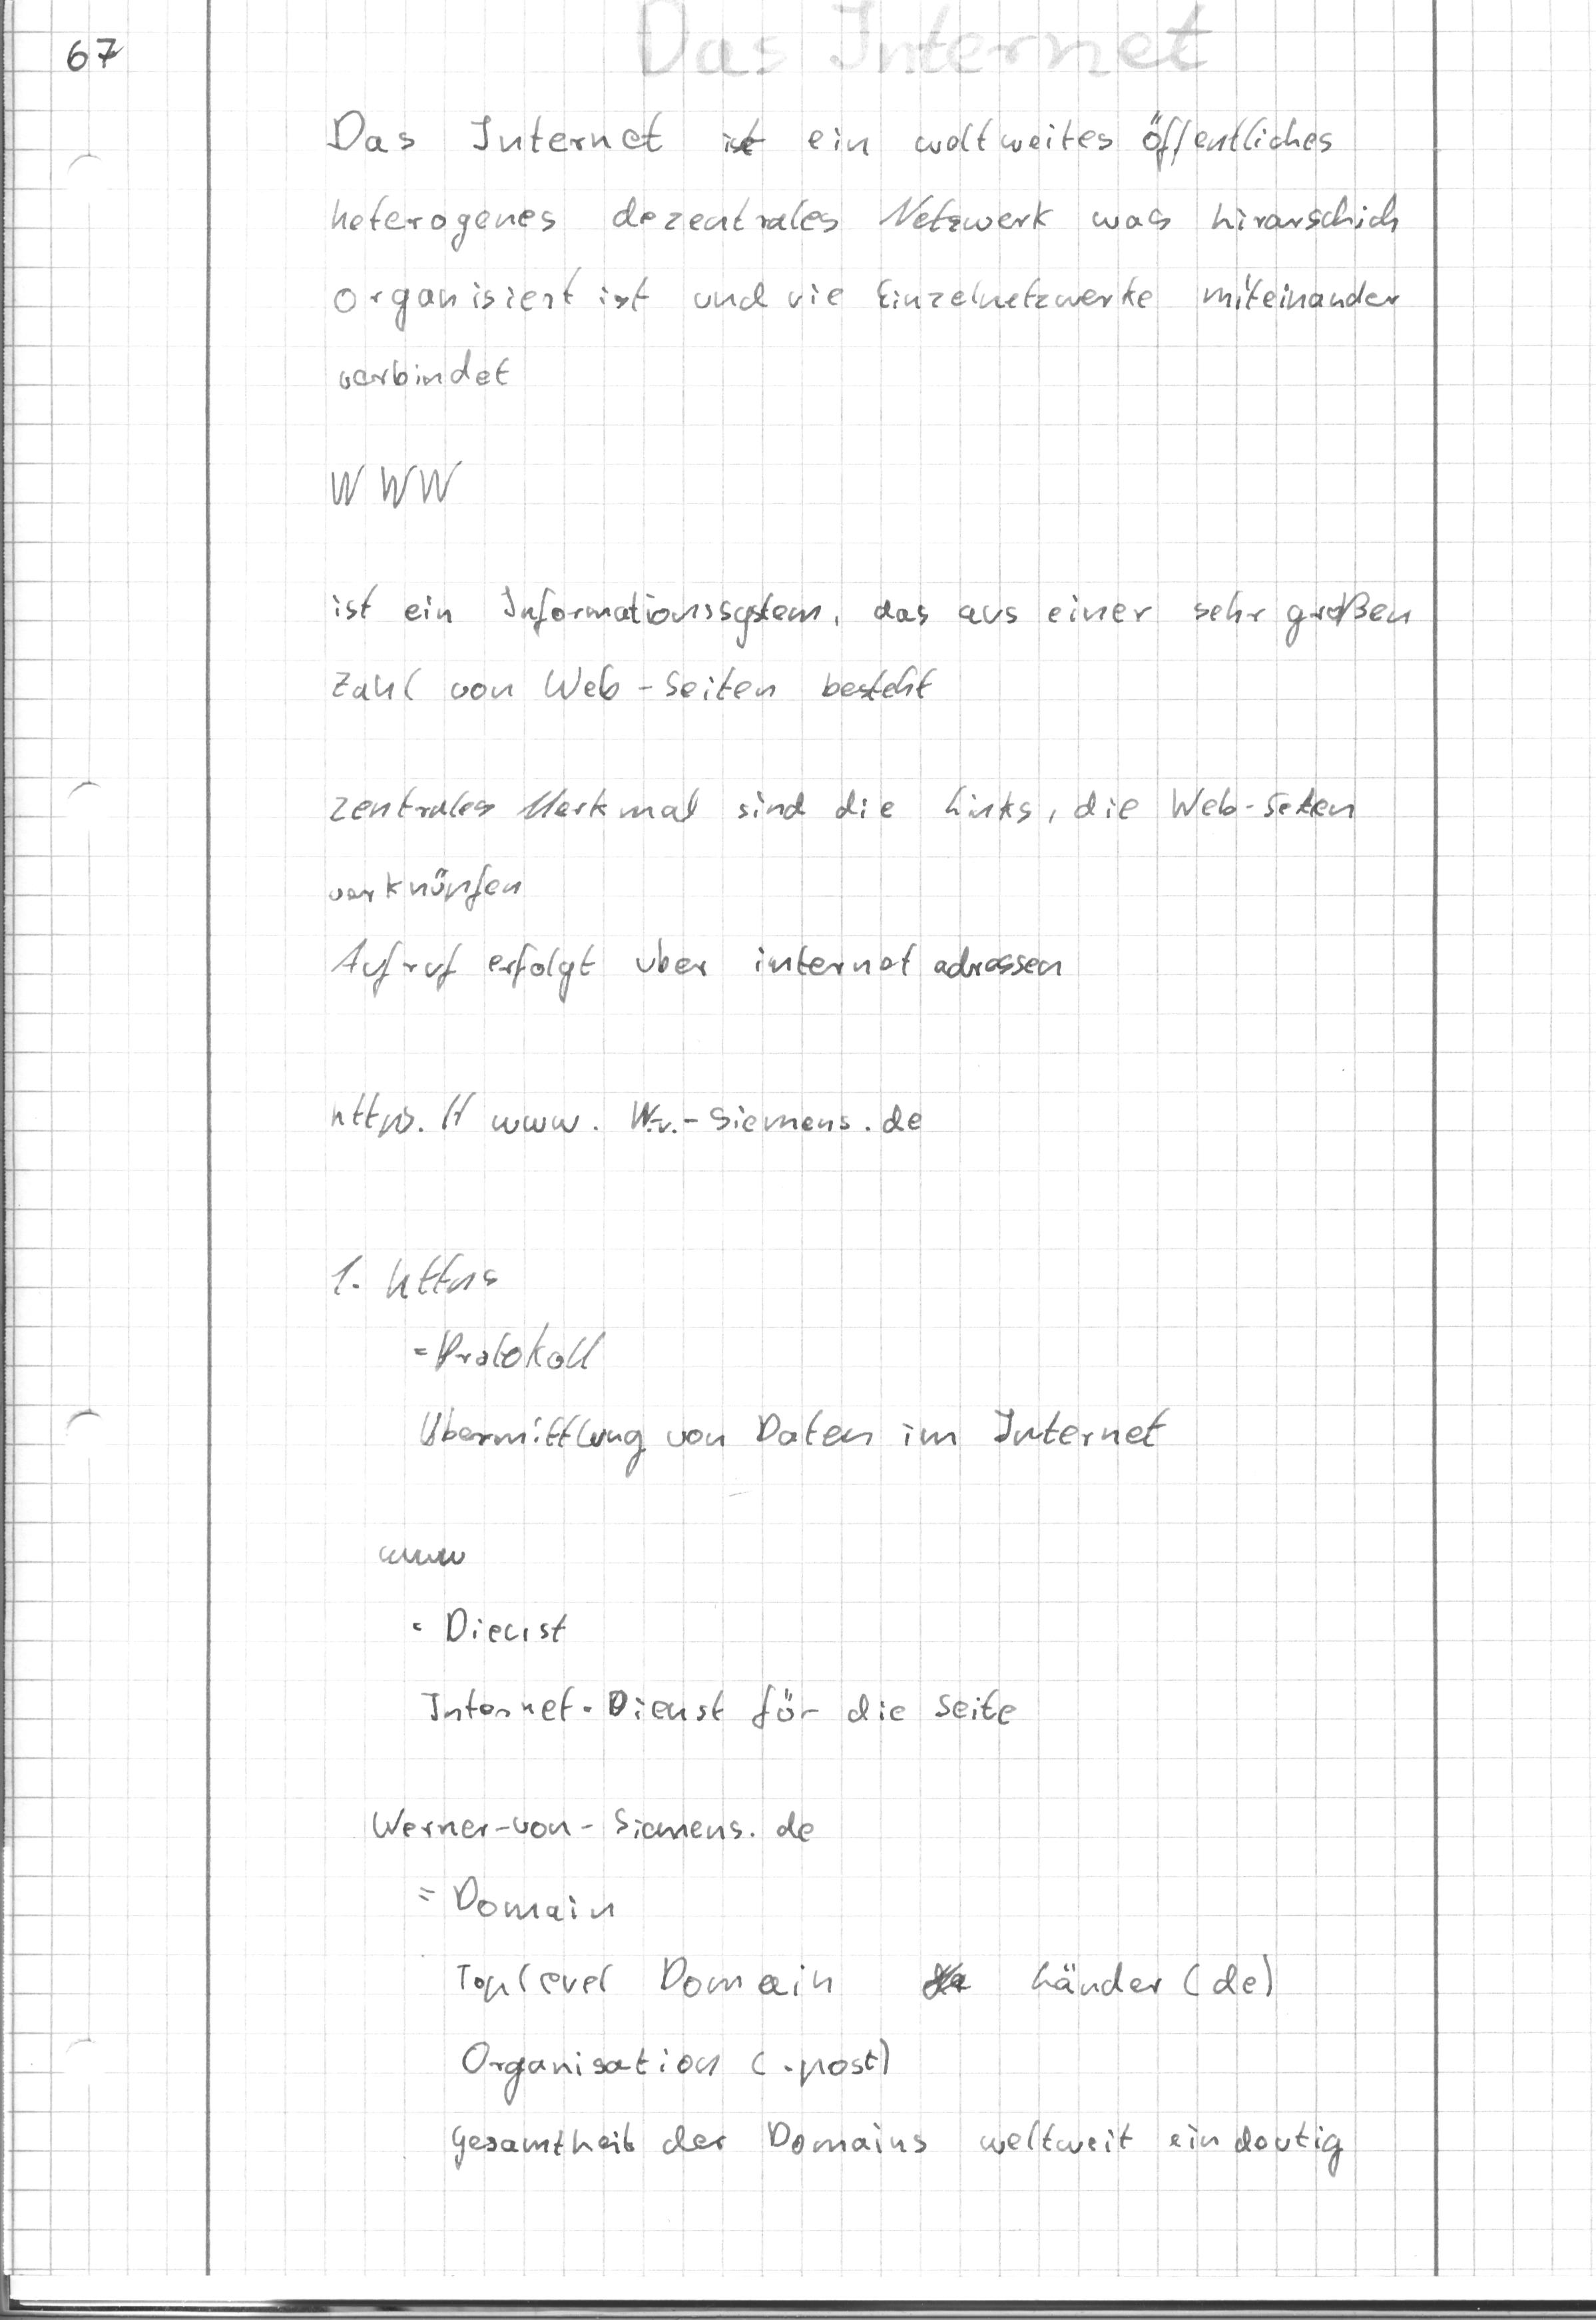 67
Das Internet
Das Internet ist ein weltweites öffentliches
heterogenes dezentrales Netzwerk was hirarschich
organisiert ist und vie Einzelnetzwerke miteinander
verbindet
WWW
ist ein Informationssystem, das aus einer sehr großen
Zahl von Web-Seiten besteht
zentrales Merkmal sind die Links, die Web-Seten
verknüpfen
Aufruf erfolgt uber internet adressen
https.// www. W.v.-Siemens.de
1. https
= Protokoll
Ubermittlung von Daten im Internet
www
= Dienst
Internet-Dienst für die Seite
Werner-von-Siemens.de
= Domain
Toplevel Domain Länder (de)
Organisation (.post)
Gesamtheit der Domains weltweit eindeutig